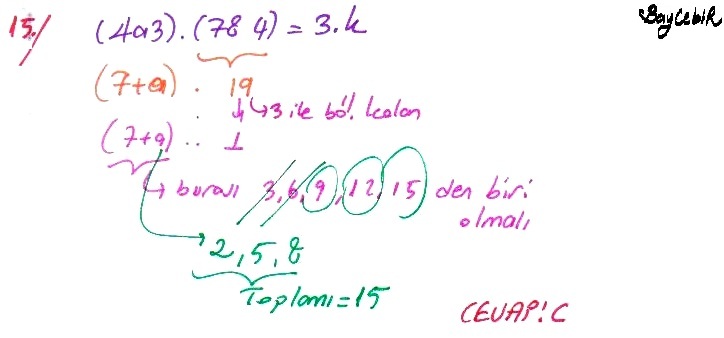 BayCebiR
15./ (4a3).(784) = 3.k
(7+a) . 19
↳ 3 ile böl. kalan
(7+a) .. 1
↳ burası 3, 6, 9, 12, 15 den biri
olmalı
2, 5, 8
Toplamı = 15
CEVAP: C